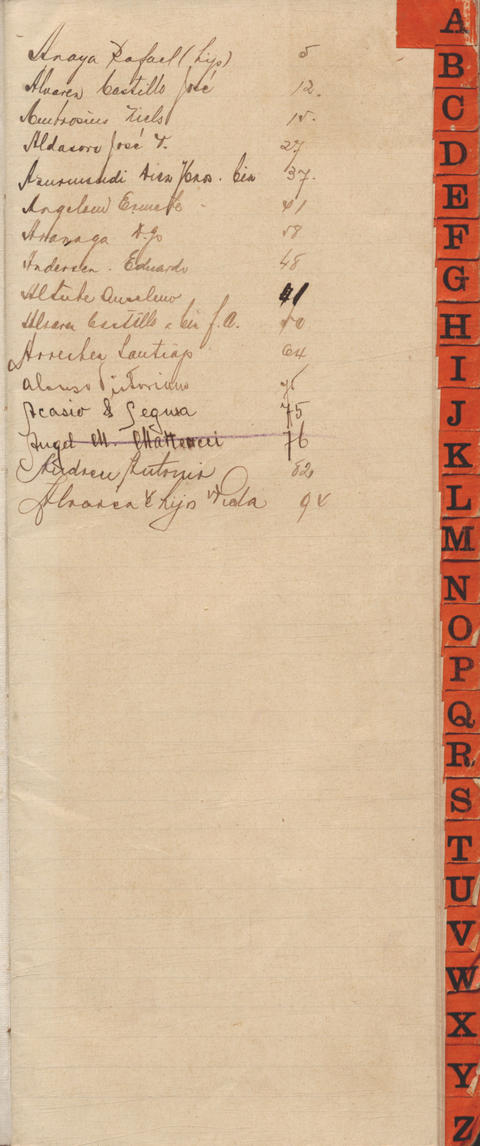 Anaya Rafael (hijo) 5
Alvarez Castillo José 12.
Ambrosius Niels 15.
Aldasoro José V. 27
Azurmendi Hnos. Cia 37.
Angelini Ernesto 41
Arranaga 58
Andersen. Eduardo 48
Altube Anselmo 41
Alvarez Castillo & Cia J. A. 50
Arrechea Santiago 64
Alonso Victoriano
Acasio & Segura 75
Angel M. Matteucci 76
Andreu Antonio 82
Alvarez & hijos Vda 94
A
B
C
D
E
F
G
H
I
J
K
L
M
N
O
P
Q
R
S
T
U
V
W
X
Y
Z